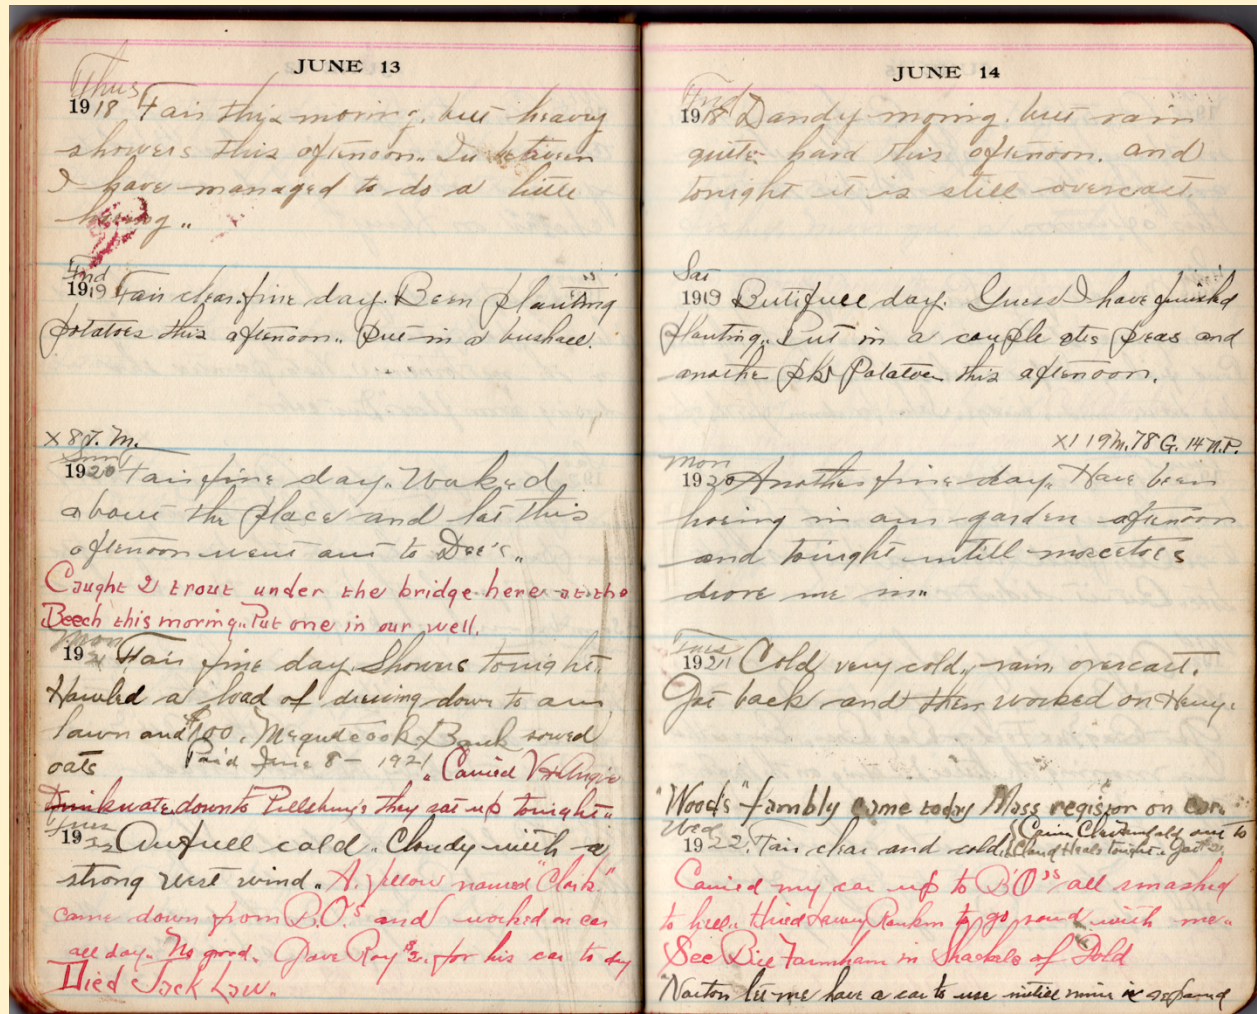 JUNE 13
Thurs
1918 Fair this moring, but heavy
showers this afternoon.. In between
I have managed to do a little
hoeing..
Frid
1919 Fair clear fine day. Been planting
potatoes this afternoon.. Put in a bushell.
X 8 T. M.
Sun
1920 Fair fine day. Worked
about the place and lat this
afternoon went out to Dee's..
Caught 2 trout under the bridge here at the
Beech this moring.. Put one in our well.
Mon
1921 Fair fine day. Showers tonight..
Hawled a load of dressing down to our
lawn and $100. Megunticook Bank sowed
oats Paid June 8 - 1921 .. Carried V & Angie
Drinkwater down to Pillsbury's they sat up tonight..
Tues
1922 Awfull cold. Cloudy with a
strong west wind.. A fellow named "Clark"
came down from B.O.'s and worked on car
all day.. No good. Gave Ray $2. for his car to day
Died Jack Law..
JUNE 14
Frid
1918 Dandy moring. but rain
quite hard this afternoon. and
tonight it is still overcast.
Sat
1919 Butifull day. Guess I have finished
planting.. Put in a couple qts peas and
another pk Potatoes this afternoon.
X1 19 M. 78 G. 14 N.P.
Mon
1920 Another fine day. Have been
hoeing in our garden afternoon
and tonight untill moscetoes
drove me in..
Tues
1921 Cold very cold,, rain, overcast.
Got back and then worked on Henry.
"Wood's" fambly came today Mass register on car..
Wed
1922. Fair clear and cold. out to
tonight..
Carried my car up to B'O's all smashed
to hell.. Hired Rankin to go round with me..
See Bill Farnham in Shackels of Gold
Norton let me have a car to use untill mine is